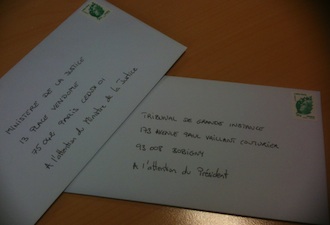 MINISTERE DE LA JUSTICE
13 PLACE VENDOME
75 042 PARIS CEDEX 01
A l'attention du Ministre de la Justice
TRIBUNAL DE GRANDE INSTANCE
173 AVENUE PAUL VAILLANT COUTURIER
93 008 BOBIGNY
A l'attention du Président